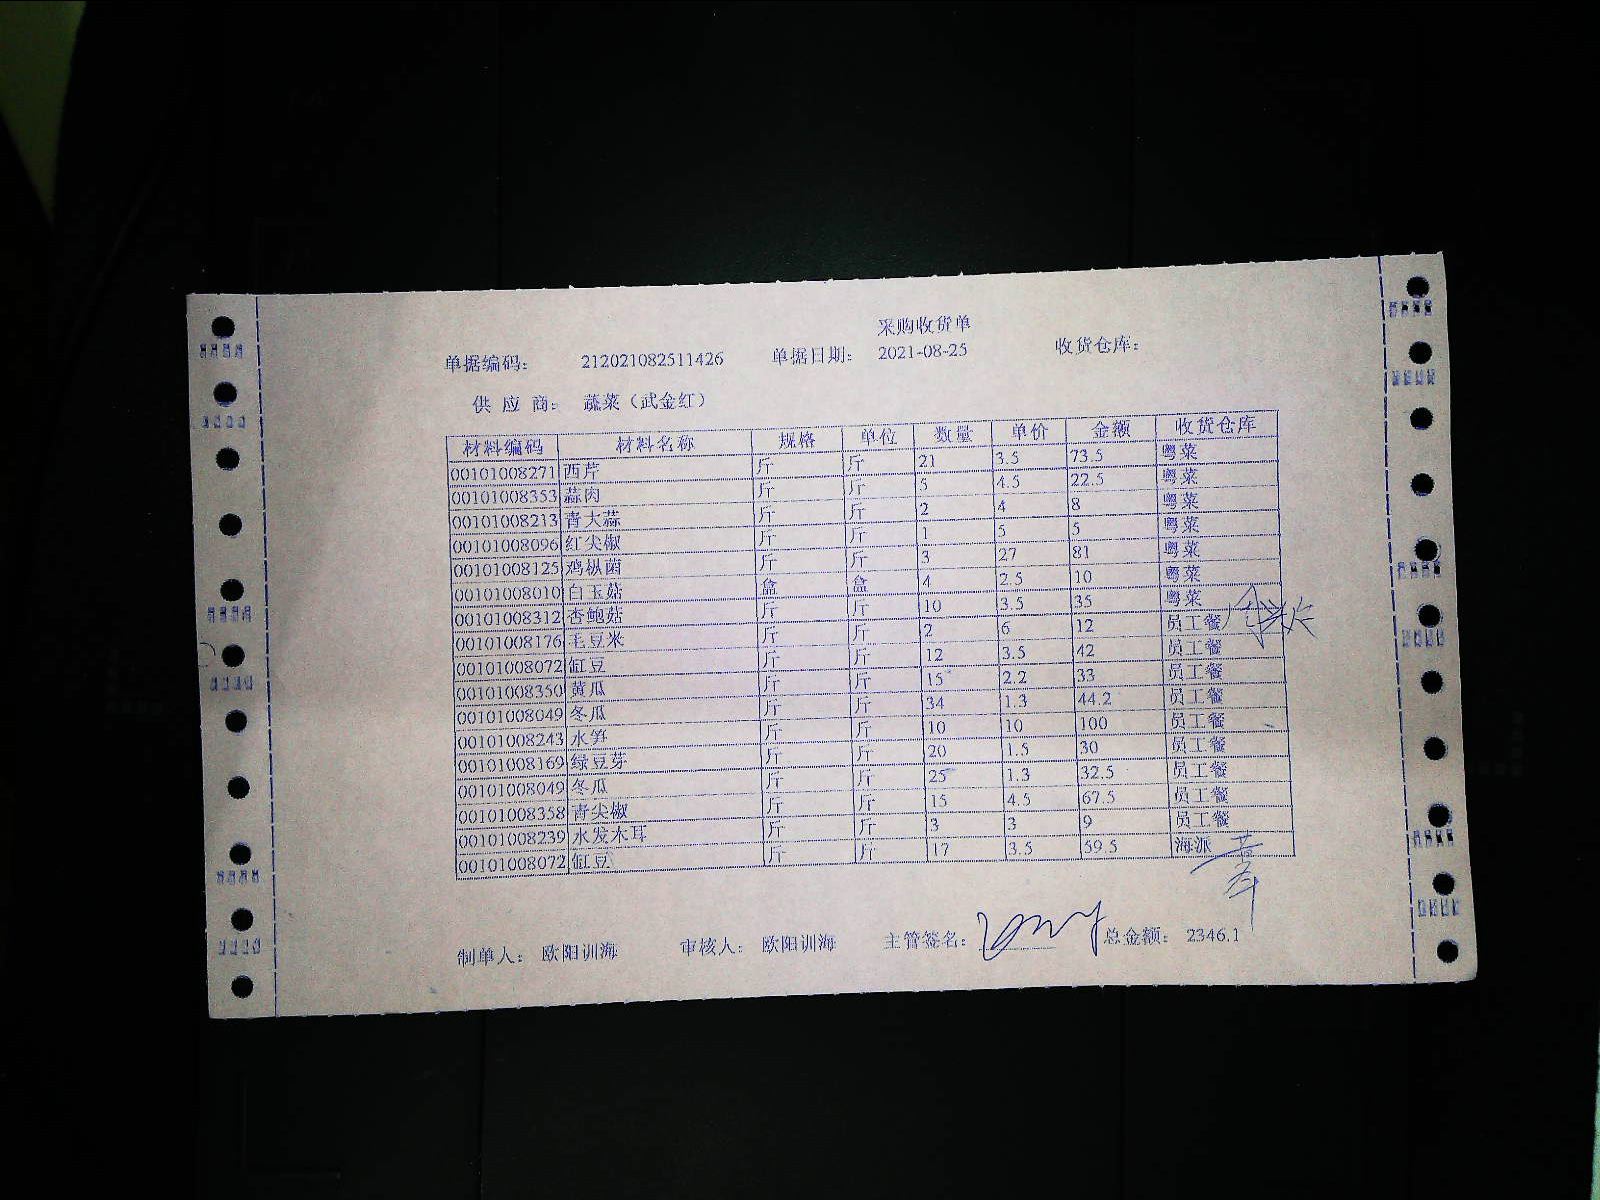 采购收货单
单据编码: 212021082511426 单据日期: 2021-08-25 收货仓库:
供 应 商: 蔬菜（武金红）
材料编码 材料名称 规格 单位 数量 单价 金额 收货仓库
00101008271 西芹 斤 斤 21 3.5 73.5 粤菜
00101008353 蒜肉 斤 斤 5 4.5 22.5 粤菜
00101008213 青大蒜 斤 斤 2 4 8 粤菜
00101008096 红尖椒 斤 斤 1 5 5 粤菜
00101008125 鸡枞菌 斤 斤 3 27 81 粤菜
00101008010 白玉菇 盒 盒 4 2.5 10 粤菜
00101008312 杏鲍菇 斤 斤 10 3.5 35 粤菜
00101008176 毛豆米 斤 斤 2 6 12 员工餐
00101008072 缸豆 斤 斤 12 3.5 42 员工餐
00101008350 黄瓜 斤 斤 15 2.2 33 员工餐
00101008049 冬瓜 斤 斤 34 1.3 44.2 员工餐
00101008243 水笋 斤 斤 10 10 100 员工餐
00101008169 绿豆芽 斤 斤 20 1.5 30 员工餐
00101008049 冬瓜 斤 斤 25 1.3 32.5 员工餐
00101008358 青尖椒 斤 斤 15 4.5 67.5 员工餐
00101008239 水发木耳 斤 斤 3 3 9 员工餐
00101008072 缸豆 斤 斤 17 3.5 59.5 海派
制单人: 欧阳训海 审核人: 欧阳训海 主管签名: 总金额: 2346.1